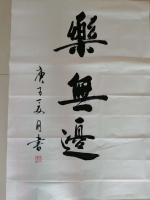 樂無邊
庚子夏月書